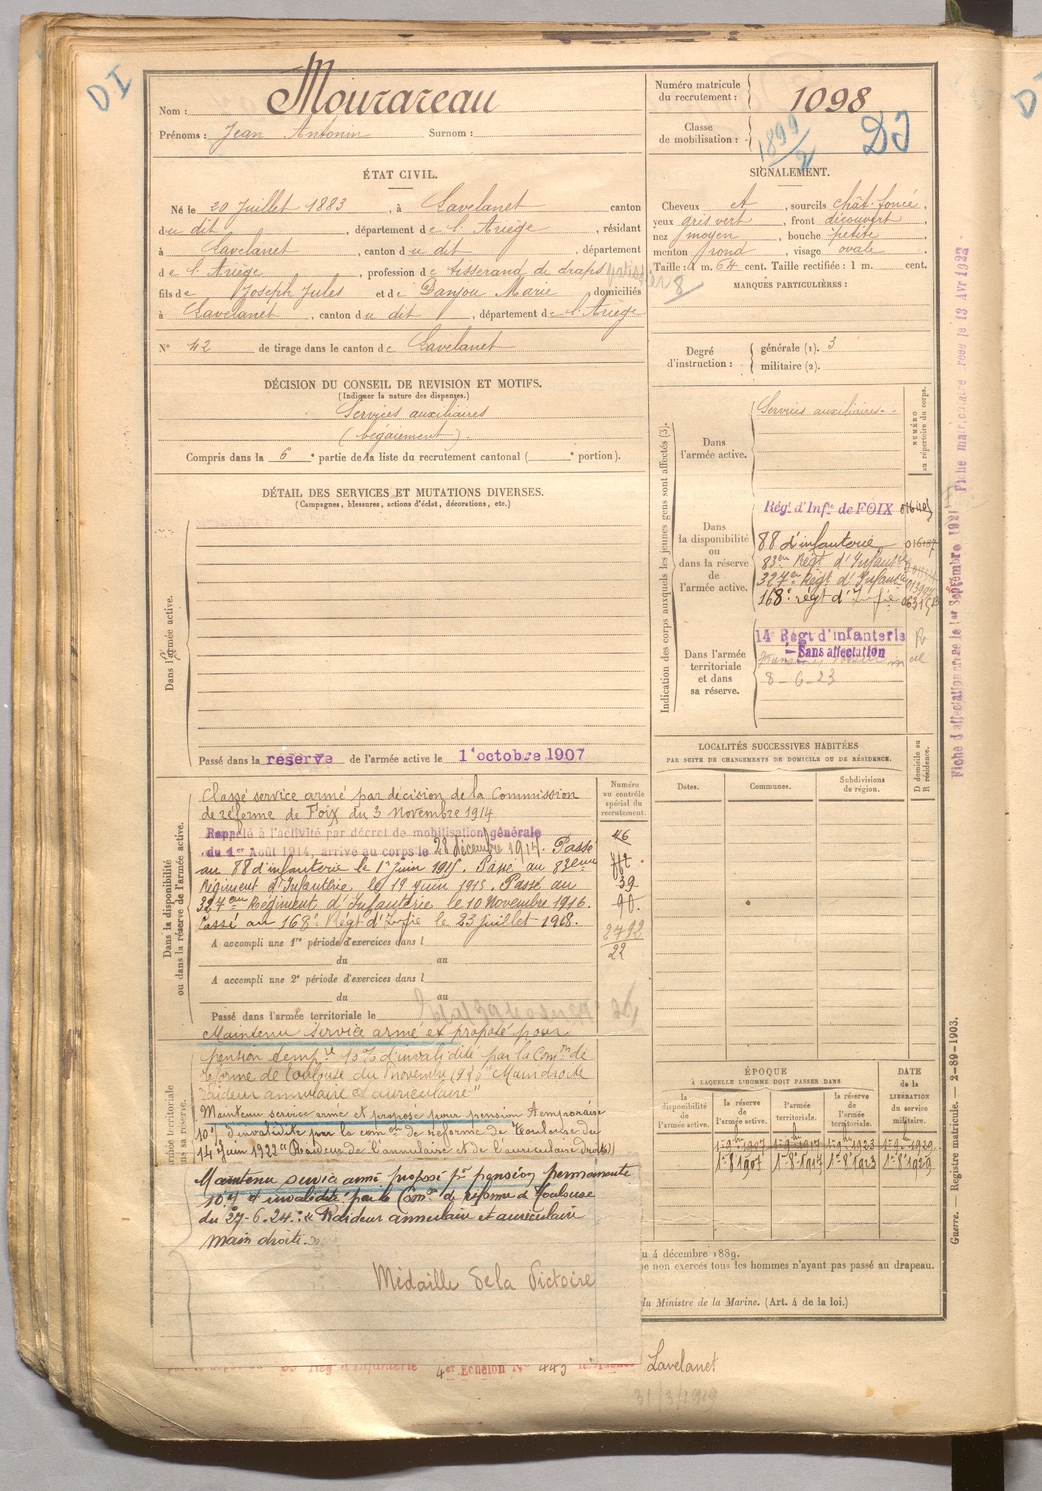 DI
Nom : Mourareau
Prénoms : Jean Antonin Surnom :
Numéro matricule du recrutement : 1098
Classe de mobilisation : 1899/2 DI
ÉTAT CIVIL.
Né le 20 Juillet 1883, à Lavelanet canton
du dit, département de l'Ariège, résidant
à Lavelanet, canton du dit, département
de l'Ariège, profession de tisserand de draps
fils de Joseph Jules et de Danjou Marie, domiciliés
à Lavelanet, canton du dit, département de l'Ariège
N° 42 de tirage dans le canton de Lavelanet
SIGNALEMENT.
Cheveux ct, sourcils chât. foncé,
yeux gris vert, front découvert
nez moyen, bouche petite
menton rond, visage ovale
Taille : 1 m. 64 cent. Taille rectifiée : 1 m. cent.
MARQUES PARTICULIÈRES :
8
Degré d'instruction : générale (1). 3
militaire (2).
DÉCISION DU CONSEIL DE REVISION ET MOTIFS.
(Indiquer la nature des dispenses.)
Services auxiliaires
(bégaiement).
Compris dans la 6e partie de la liste du recrutement cantonal (e portion).
DÉTAIL DES SERVICES ET MUTATIONS DIVERSES.
(Campagnes, blessures, actions d'éclat, décorations, etc.)
Dans l'armée active.
Passé dans la réserve de l'armée active le 1er octobre 1907
Indication des corps auxquels les jeunes gens sont affectés (3).
NUMÉRO au répertoire du corps.
Dans l'armée active.
Services auxiliaires.
Dans la disponibilité ou dans la réserve de l'armée active.
Régt d'Infie de FOIX
88 d'infanterie
83em Régt d'Infante
324em Régt d'Infante
168e régt d'Infie
Dans l'armée territoriale et dans sa réserve.
14e Régt d'infanterie
Sans affectation
8-6-23
Fiche matriculaire créée le 13 Avr 1922
Fiche d'affectation créée le 1er Septembre 1921
LOCALITÉS SUCCESSIVES HABITÉES
PAR SUITE DE CHANGEMENTS DE DOMICILE OU DE RÉSIDENCE.
Dates. Communes. Subdivisions de région. D domicile ou R résidence.
Dans la disponibilité ou dans la réserve de l'armée active.
Numéro au contrôle spécial du recrutement.
Classé service armé par décision de la Commission
de réforme de Foix du 3 Novembre 1914
Rappelé à l'activité par décret de mobilisation générale
du 1er Août 1914, arrivé au corps le 28 décembre 1914. Passé
au 88 d'infanterie le 1er Juin 1915. Passé au 83eme
Régiment d'Infanterie, le 19 Juin 1915. Passé au
324eme Régiment d'Infanterie le 10 Novembre 1916.
Passé au 168e Régt d'Infie le 23 juillet 1918.
46
39
90.
2492
22
A accompli une 1re période d'exercices dans l
du au
A accompli une 2e période d'exercices dans l
du au
Passé dans l'armée territoriale le
Maintenu service armé et proposé pour
pension tempre 10% d'invalidité par la Comon de
réforme de Toulouse du novembre "Main droite
raideur annulaire et auriculaire"
Maintenu service armé et proposé pour pension temporaire
10% d'invalidité par la comon de réforme de Toulouse du
14 Juin 1922 "Raideur de l'annulaire et de l'auriculaire droits"
Maintenu service armé proposé pr pension permanente
10% d'invalidité par la Comon de réforme de Toulouse
du 27-6-24 : « Raideur annulaire et auriculaire
main droite. »
Médaille de la Victoire
ÉPOQUE
À LAQUELLE L'HOMME DOIT PASSER DANS
la disponibilité de l'armée active. la réserve de l'armée active. l'armée territoriale. la réserve de l'armée territoriale.
DATE de la LIBÉRATION du service militaire.
1-8-1907 1-8-1914 1-8-1923 1-8-1929
u 4 décembre 1889.
non exercés tous les hommes n'ayant pas passé au drapeau.
du Ministre de la Marine. (Art. 4 de la loi.)
Guerre. — Registre matricule. — 2-89-1903.
4er Echelon N° 443 Lavelanet
31/3/1919